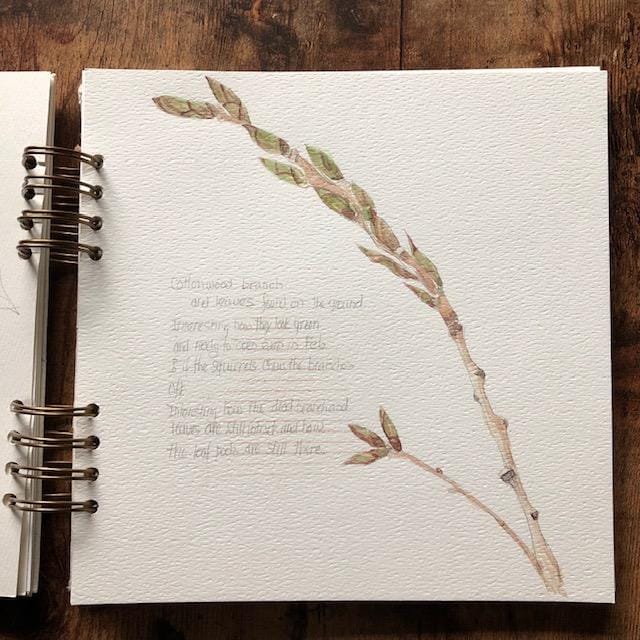 Cottonwood branch
and leaves found on the ground
Interesting how they look green
and ready to open even in Feb
If the squirrels chew the branches
off
Interesting how the dead branch and
leaves are still intact and how
the leaf pods are still there.